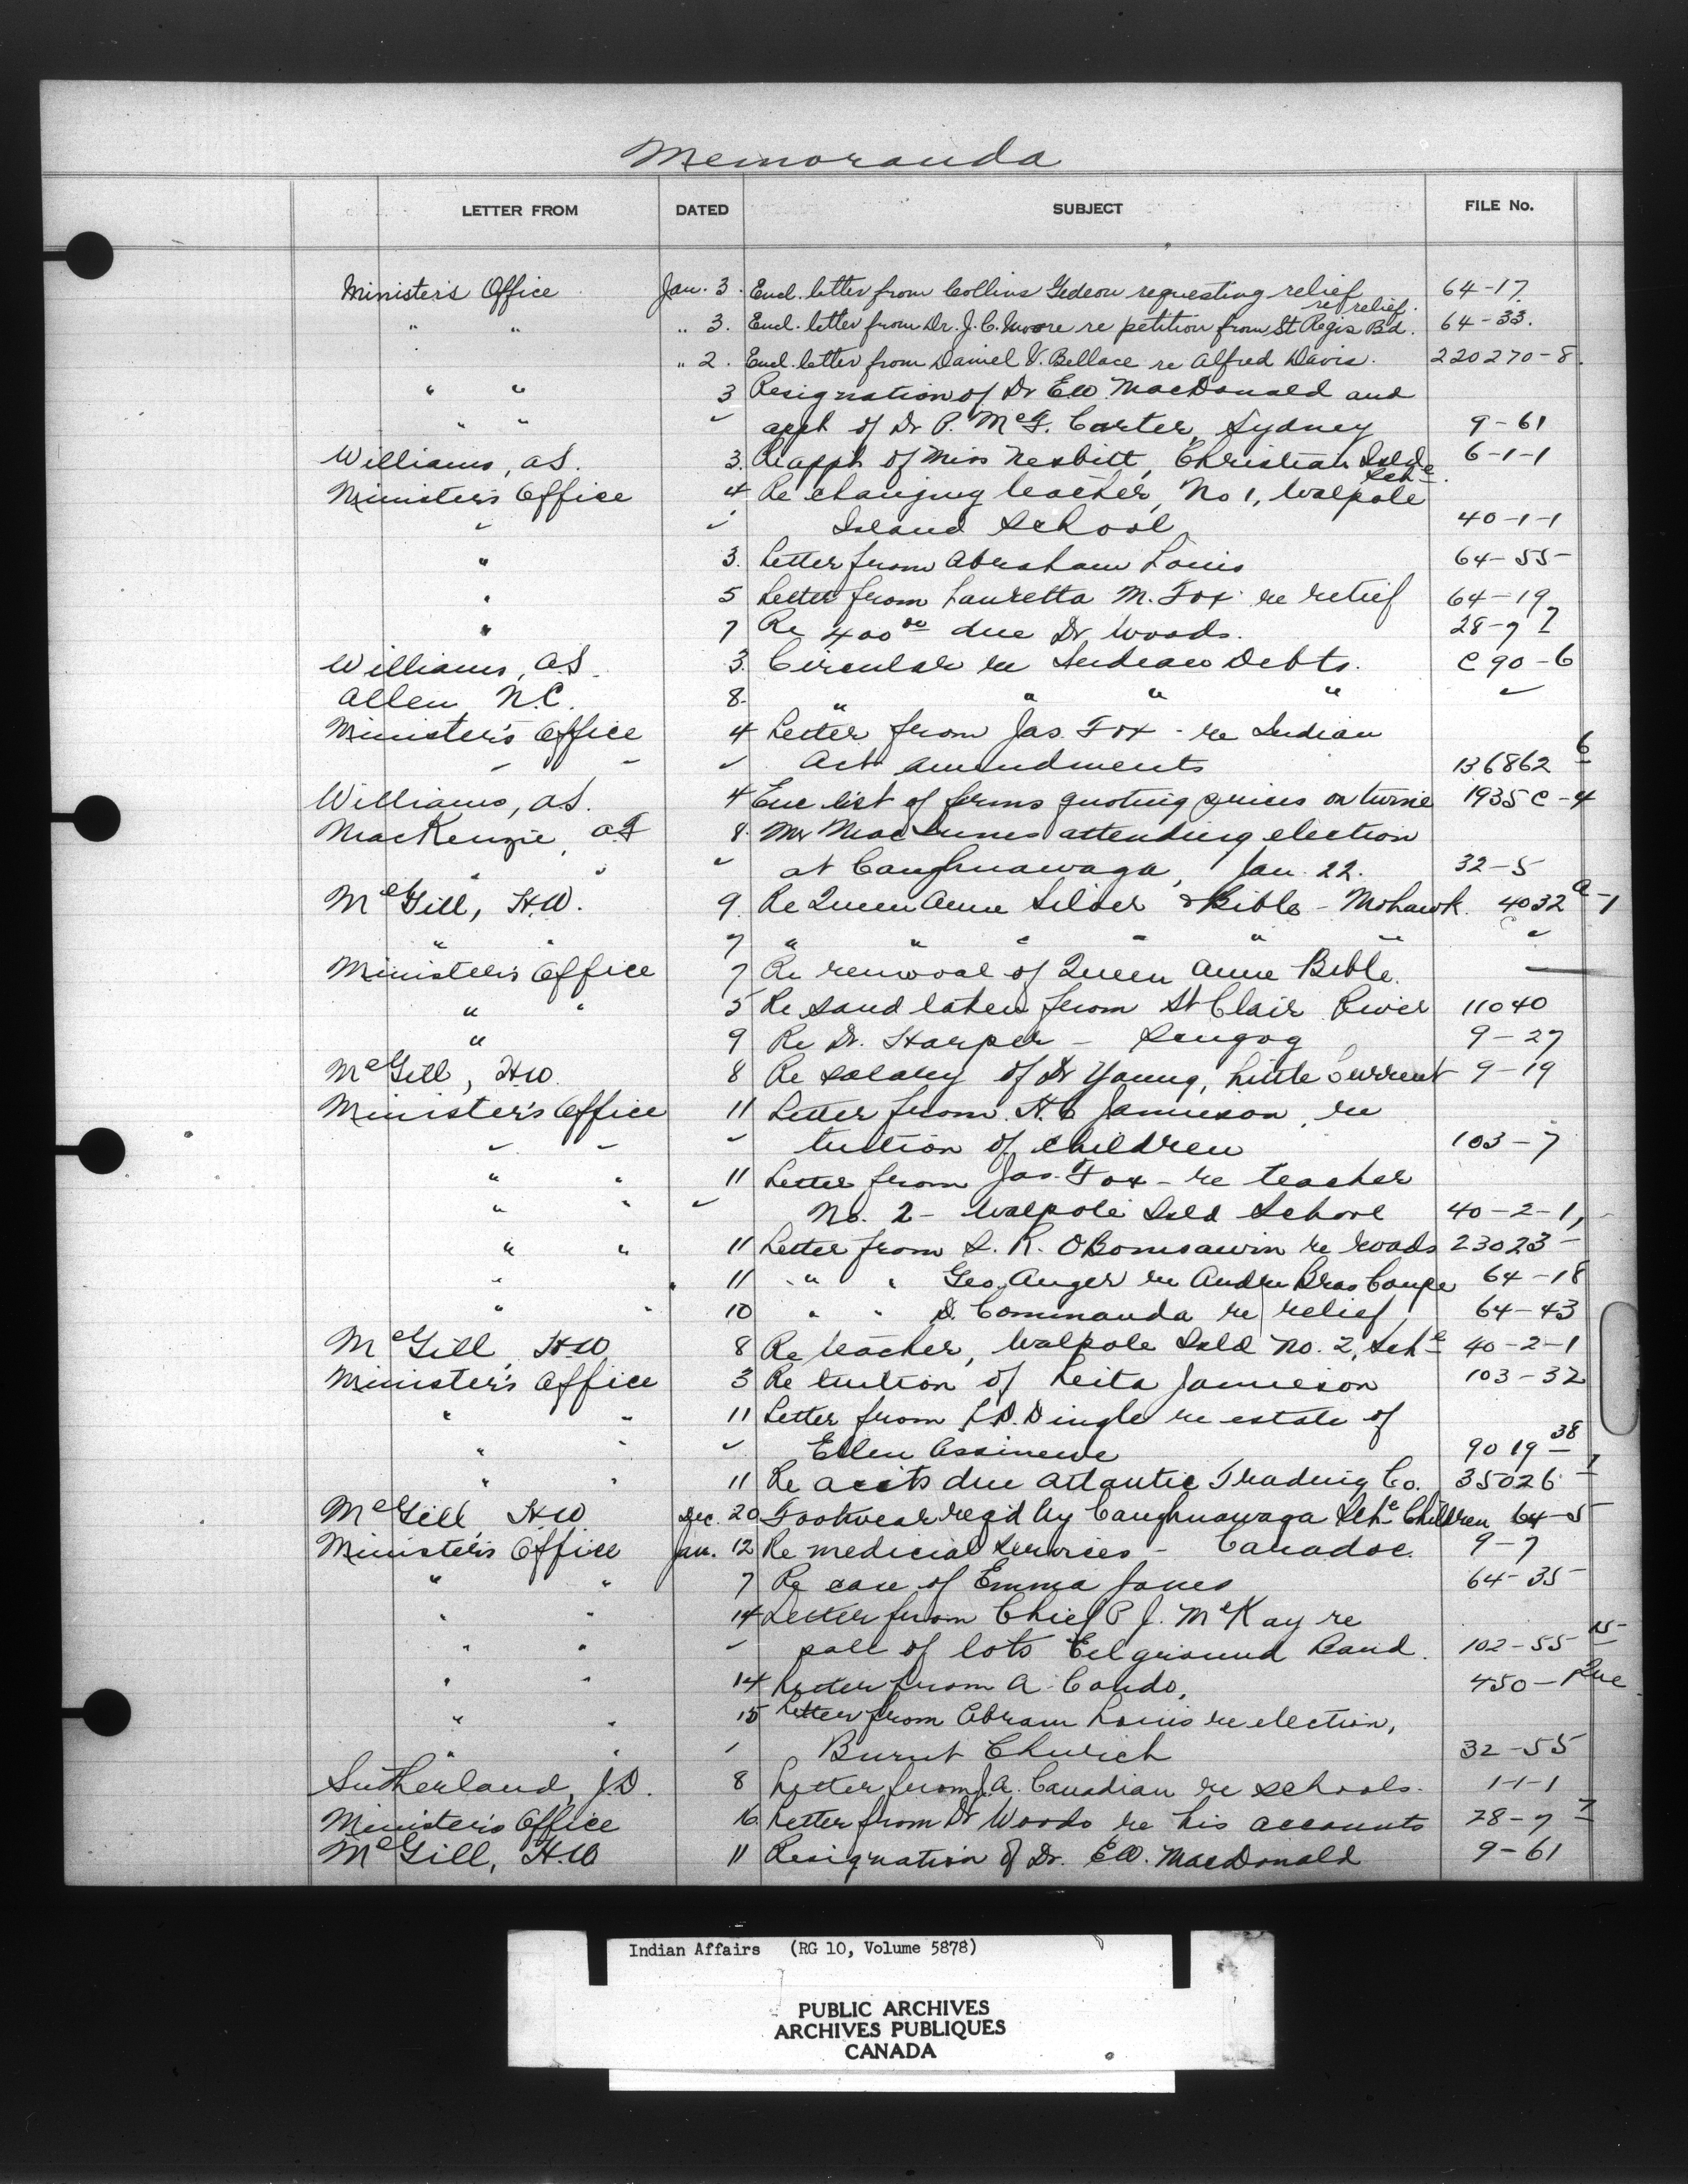 Memoranda
LETTER FROM DATED SUBJECT FILE No.
Minister's Office Jan. 3. Encl. letter from Collins Gedeon requesting relief 64-17.
" " " 3. Encl. letter from Dr. J. C. Moore re petition from St Regis Bd. re relief. 64-33.
" 2. Encl. letter from Daniel V. Bellace re Alfred Davis. 220270-8.
" " 3 Resignation of Dr E.W. MacDonald and
" " " appt of Dr P. McF. Carter, Sydney 9-61
Williams, A.S. 3. Re appt of Miss Nesbitt, Christian Isld Sch. 6-1-1
Minister's Office 4 Re changing teacher, No 1, Walpole
" " Island School 40-1-1
" 3. Letter from Abraham Louis 64-55
" 5 Letter from Lauretta M. Fox re relief 64-19
" 7 Re 400 00 due Dr Woods. 28-7 7
Williams, A.S. 3. Circular re Indian Debts. C 90-6
Allen N.C. 8. " " " " "
Minister's Office 4 Letter from Jas. Fox - re Indian
" " " Act amendments 136862 6
Williams, A.S. 4 Enc list of firms quoting prices on twine 1935 C-4
MacKenzie, A.F. 8. Mr MacInnes attending election
" " " at Caughnawaga, Jan. 22. 32-5
McGill, H.W. 9. Re Queen Anne Silver & Bible - Mohawk. 4032 A-1
" " 7 " " " " " " "
Minister's Office 7 Re removal of Queen Anne Bible.
" " 5 Re sand taken from St Clair River 11040
" 9 Re Dr. Harper - Scugog 9-27
McGill, H.W. 8 Re salary of Dr Young, Little Current 9-19
Minister's Office 11 Letter from H.C Jamieson re
" " " tuition of children 103-7
" " 11 Letter from Jas. Fox - re teacher
" " " No. 2 - Walpole Isld School 40-2-1,
" " 11 Letter from L. R. OBomsawin re roads 23023
" 11 " " Geo. Auger re Andre Bras Coupe 64-18
" " 10 " " D. Commanda re relief 64-43
McGill, H.W. 8 Re teacher, Walpole Isld No. 2, Sch. 40-2-1
Minister's Office 3 Re tuition of Leita Jamieson 103-32
" " 11 Letter from L.D. Dingle re estate of
" " " Ellen Assinewe 9019 38
" " 11 Re accts due Atlantic Trading Co. 35026 1
McGill, H.W Dec. 20 Footwear reqd by Caughnawaga Sch. Children 64-5
Minister's Office Jan. 12 Re medicial services - Caradoc. 9-7
" " 7 Re case of Emma Jones 64-35
" " 14 Letter from Chief P. J. McKay re
" " " sale of lots Eel ground Band. 102-55 15
" " 14 Letter from A. Condo, 450-1
" " 15 Letter from Abram Louis re election,
" " " Burnt Church 32-55
Sutherland, J.D. 8 Letter from J.A. Canadian re schools. 1-1-1
Minister's Office 16 Letter from Dr Woods re his accounts 28-7 7
McGill, H.W 11 Resignation of Dr. E.W. MacDonald 9-61
Indian Affairs (RG 10, Volume 5878)
PUBLIC ARCHIVES
ARCHIVES PUBLIQUES
CANADA